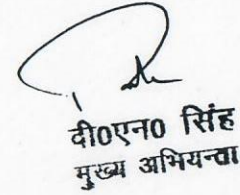 दी०एन० सिंह
मुख्य अभियन्ता